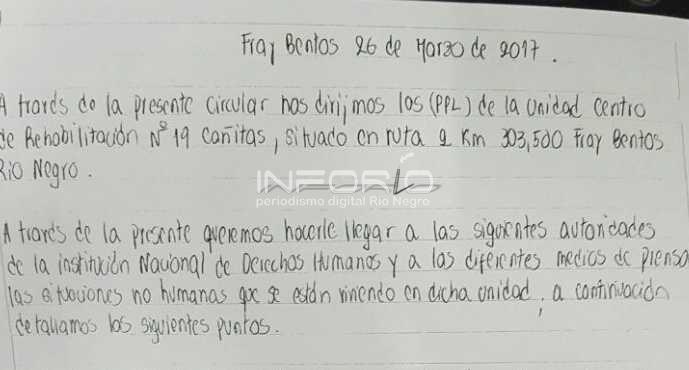 Fray Bentos 26 de Marzo de 2017.
A través de la presente circular nos dirijimos los (PPL) de la Unidad Centro
de Rehabilitación Nº 19 Cañitas, situado en ruta 2 Km 303,500 Fray Bentos
Rio Negro.
INFORÍO
periodismo digital Río Negro
A través de la presente queremos hacerle llegar a las siguientes autoridades
de la institución Nacional de Derechos Humanos y a las diferentes medios de prensa
las situaciones no humanas que se están viviendo en dicha unidad, a continuación
detallamos los siguientes puntos.